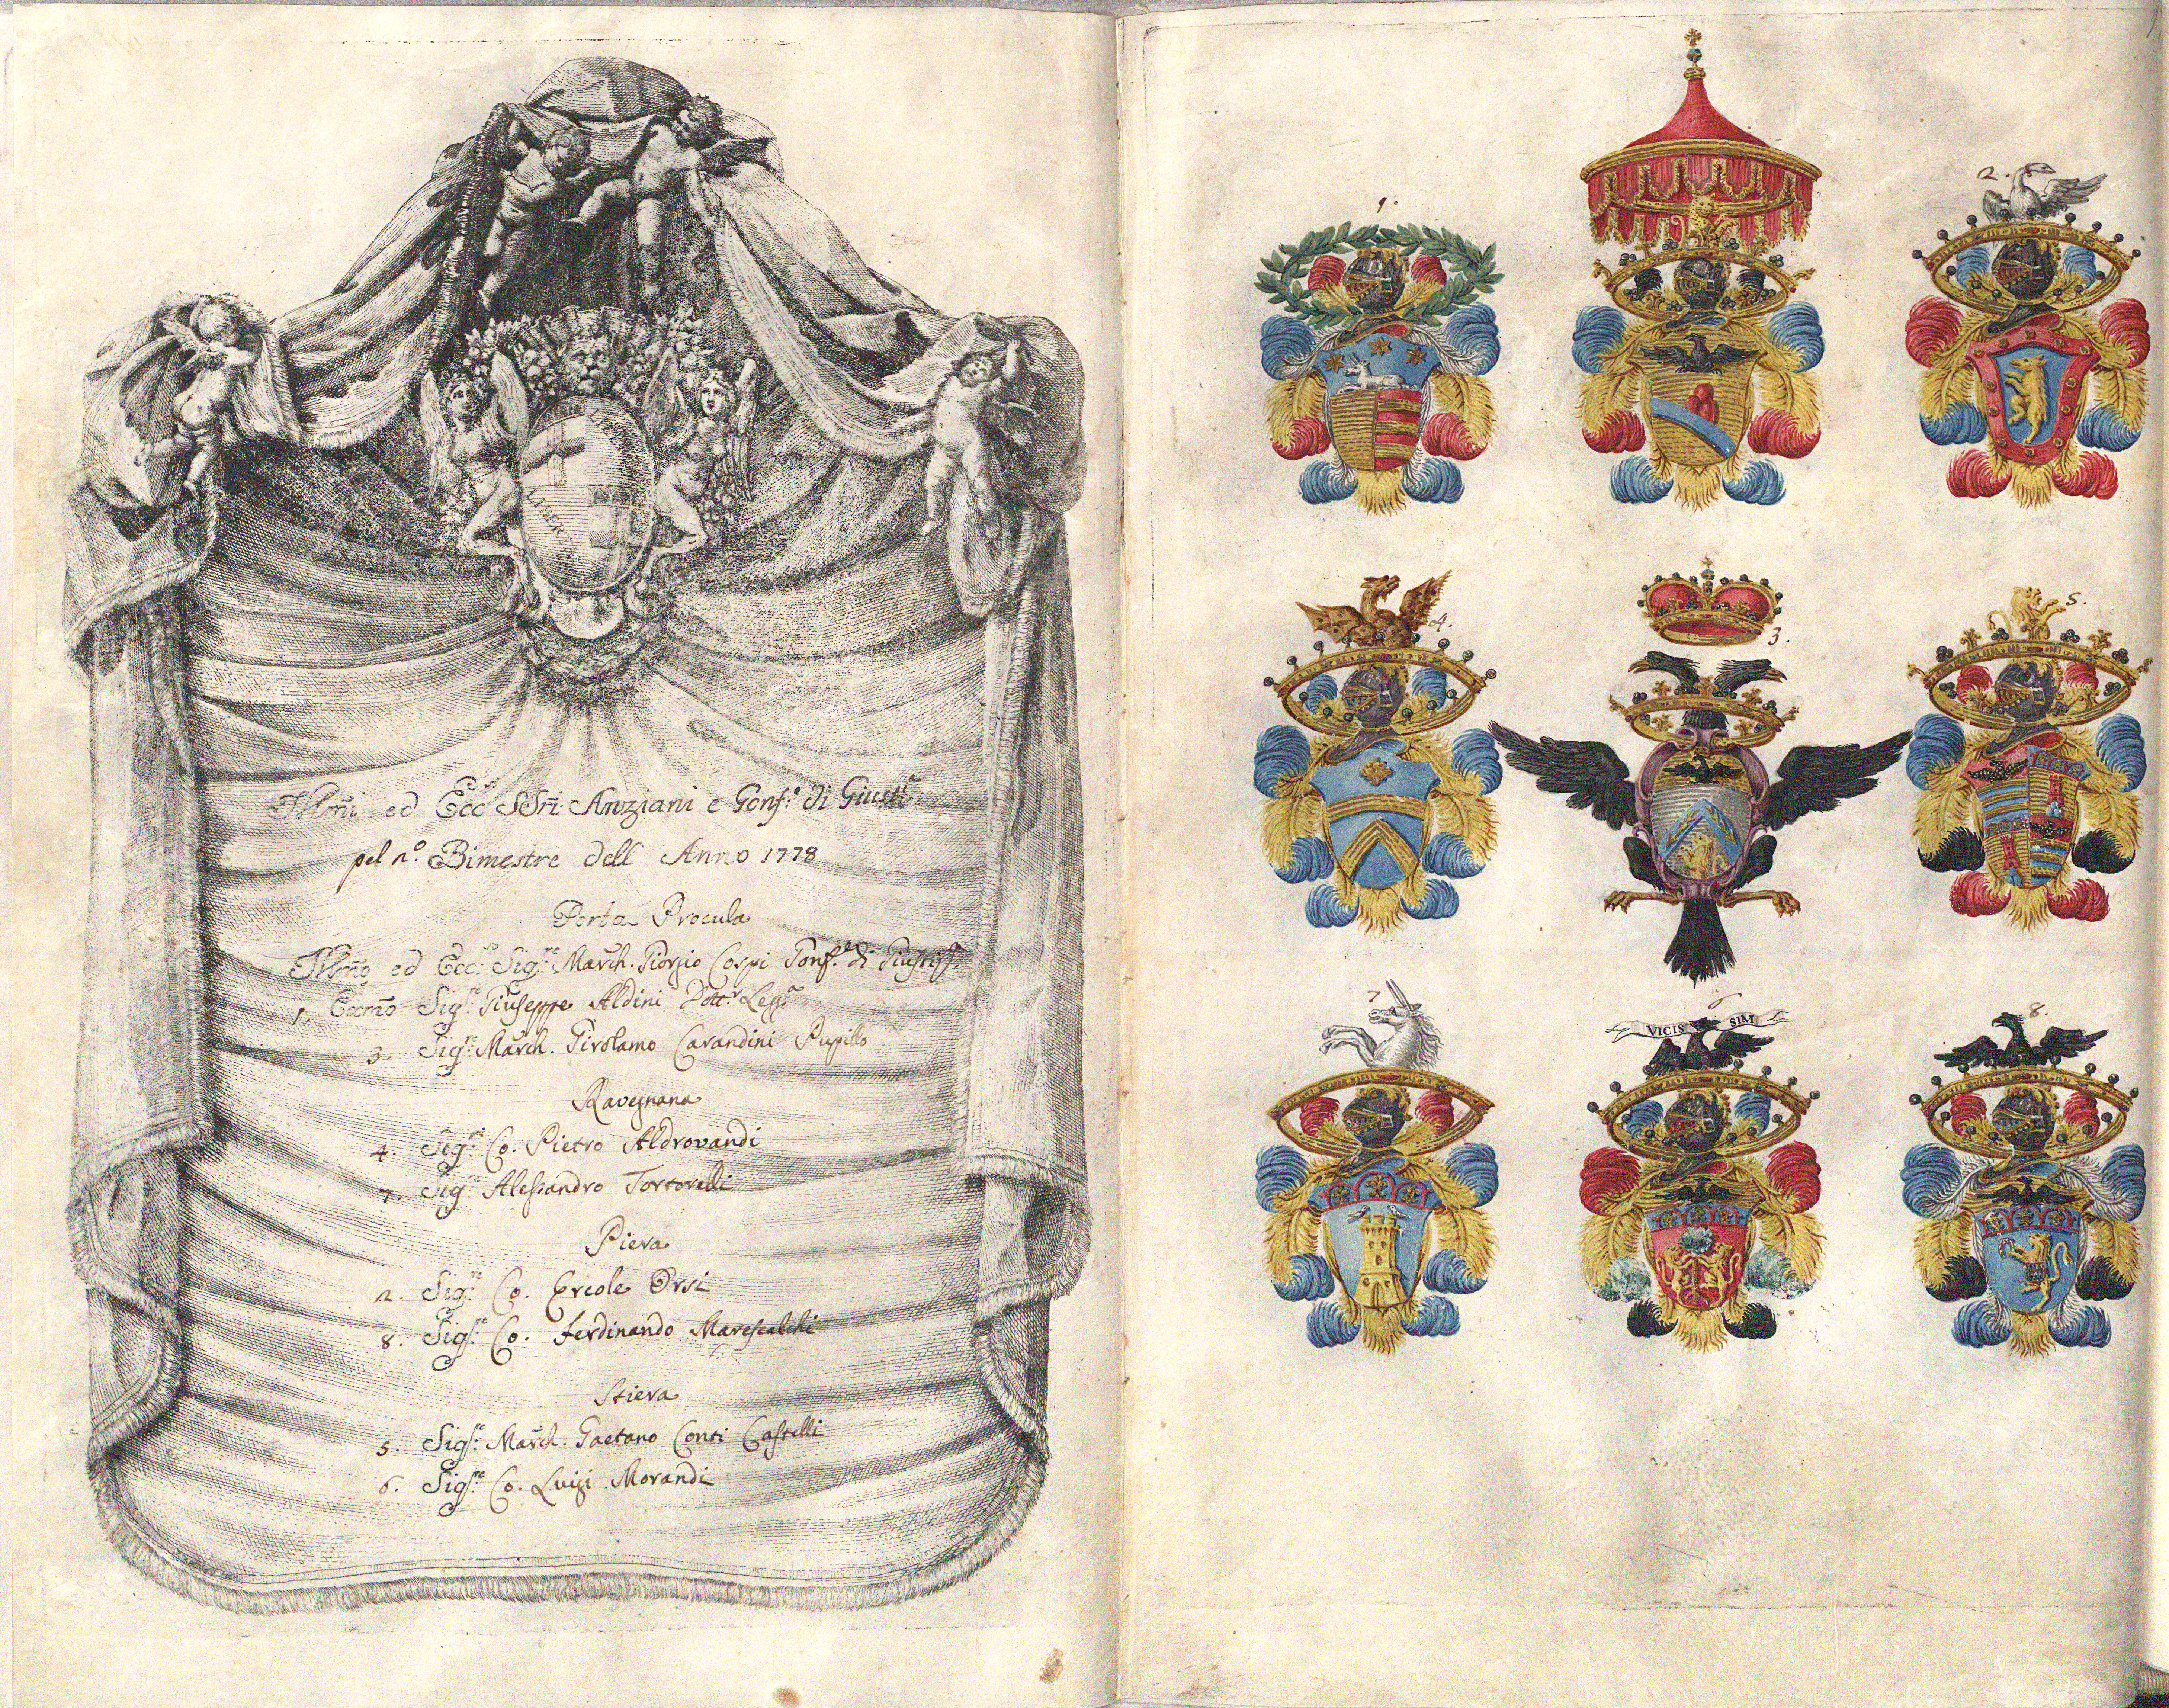 LIBERTAS
Illmi ed Ecc.si SSri Anziani e Gonf.e di Giust.a
pel 2.o Bimestre dell Anno 1778
Porta Procula
Illmo ed Ecc.so Sig.re March. Giorgio Cospi Gonf.e di Giustiz.a
1. Eccmo Sig.re Giuseppe Aldini Dott.r Legg.e
3. Sig.re March. Girolamo Carandini Pupillo
Ravegnana
4. Sig.re Co. Pietro Aldrovandi
7. Sig.re Alessandro Tortorelli
Piera
2. Sig.re Co. Ercole Orsi
8. Sig.re Co. Ferdinando Marescalchi
Stiera
5. Sig.re March. Gaetano Conti Castelli
6. Sig.re Co. Luigi Morandi
1.
2.
4.
3.
5.
7
6
VICIS SIM
8.